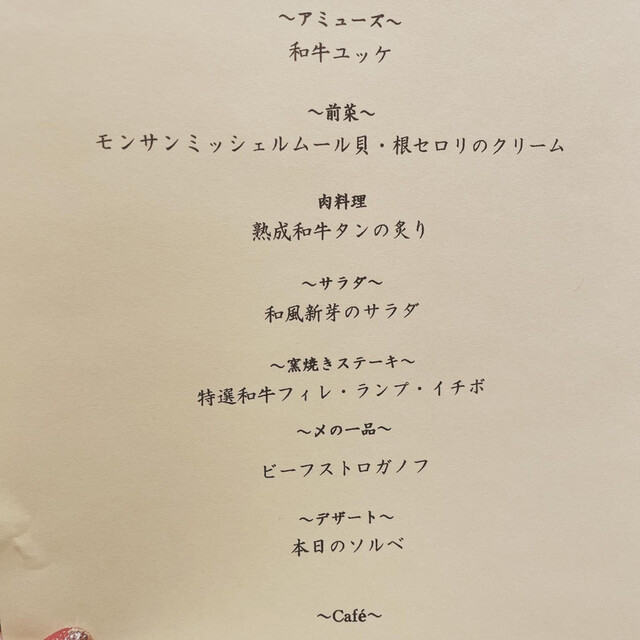 ～アミューズ～
和牛ユッケ
～前菜～
モンサンミッシェルムール貝・根セロリのクリーム
肉料理
熟成和牛タンの炙り
～サラダ～
和風新芽のサラダ
～窯焼きステーキ～
特選和牛フィレ・ランプ・イチボ
～〆の一品～
ビーフストロガノフ
～デザート～
本日のソルベ
～Café～